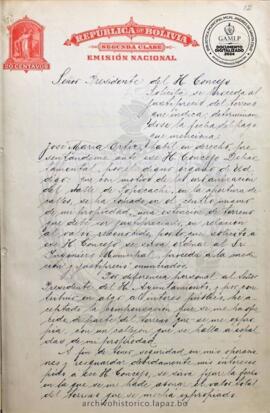 12
REPÚBLICA DE BOLIVIA
SEGUNDA CLASE
EMISIÓN NACIONAL
20 CENTAVOS
GAMLP
DOCUMENTO
DIGITALIZADO
2024
Señor Presidente del H. Concejo
Solicita se proceda al
justiprecio del terreno
que indica; determinan-
dose la fecha de pago
que menciona.
José María hábil en derecho, pre-
sentándome ante ese H. Concejo Depar-
tamental, por el digno órgano de Ud.
digo: que con motivo de la urbanización
del Valle de Sopocachi, en la apertura de
calles, se ha tomado en el centro mismo
de mi propiedad, una extensión de terreno
que debe ser justipreciado, con relación
al valor por lo que solicito a
ese H. Concejo se sirva ordenar al Sr.
Ingeniero Municipal, proceda a la medi-
ción y justiprecio enunciados.
Por deferencia personal al señor
Presidente del H. Ayuntamiento, y por con-
tribuir en algo al interés público, he a-
ceptado la compensación que se me ha ofre-
cido, de parte del terreno que se me expro-
pia, con un callejón que se halla a espal-
das de mi propiedad.
A fin de tener seguridad en mis
nes y resguardar debidamente mis intereses
pido a ese H. Concejo, se sirva fijar la fecha
en la que se me hade abonar el valor total
del terreno que se me ha expropiado
archivohistorico.lapaz.bo